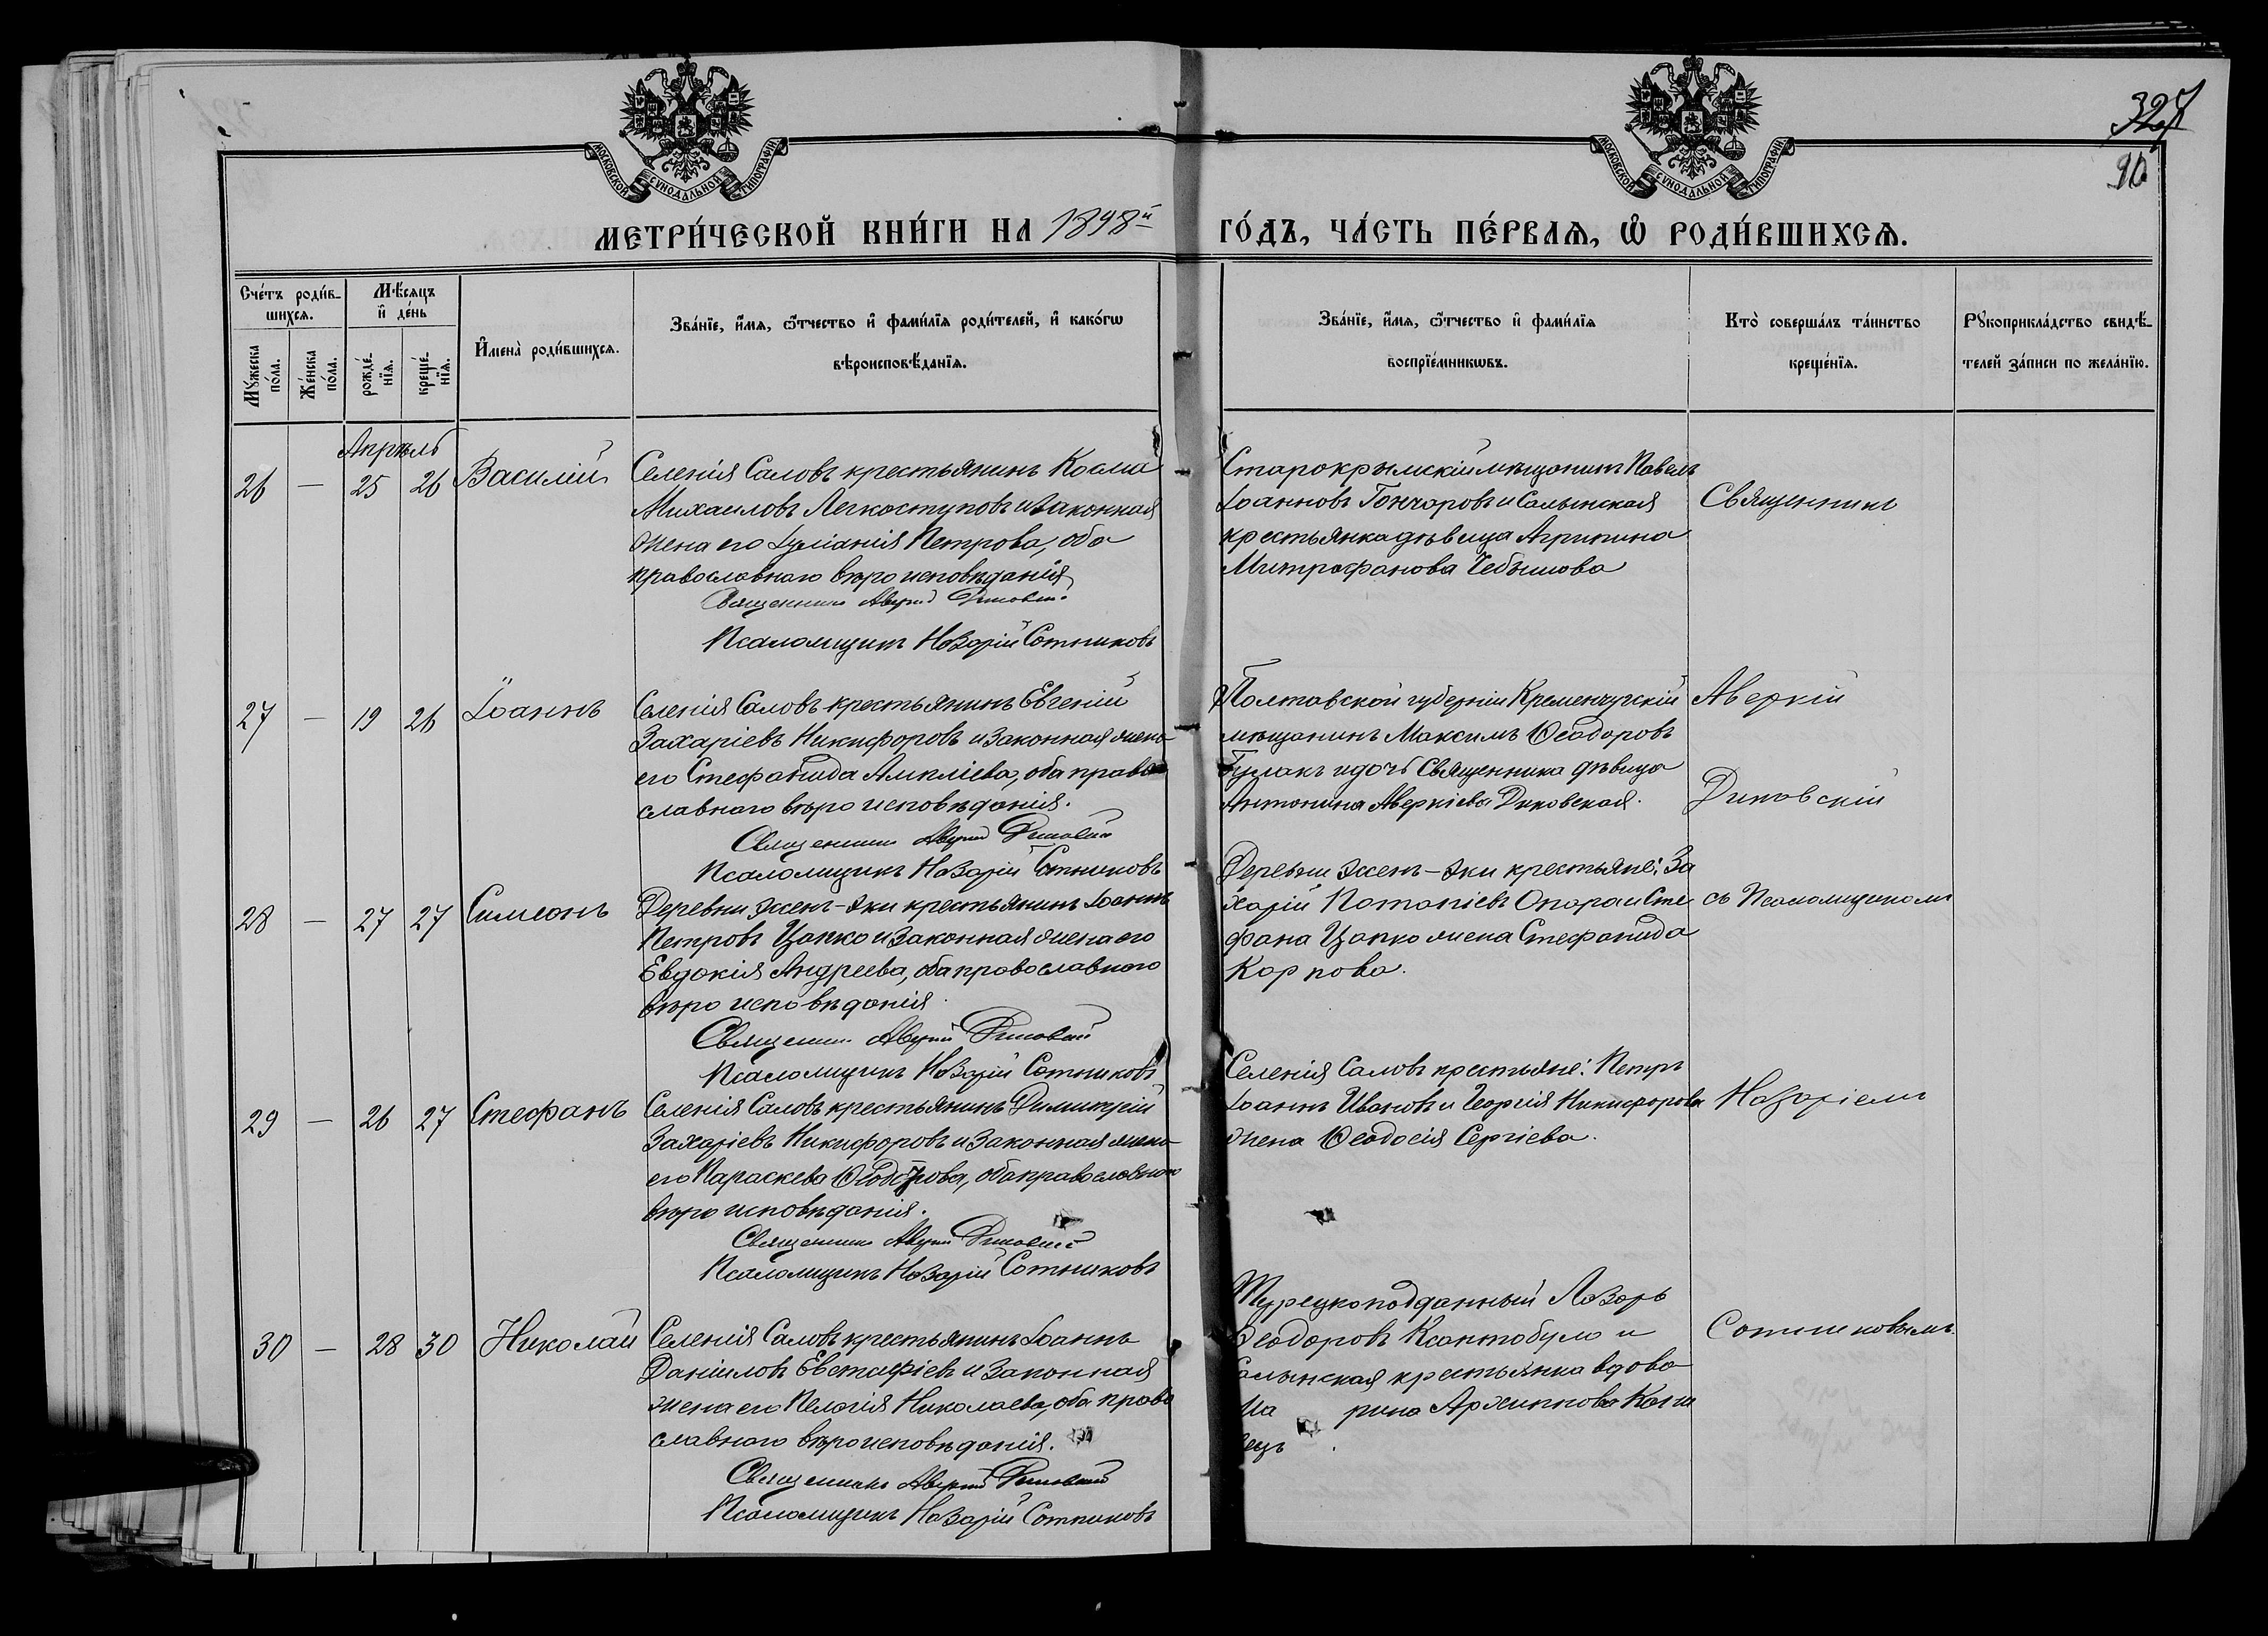 МОСКОВСКОЙ СѴНОДАЛЬНОЙ ТИПОГРАФІИ
МОСКОВСКОЙ СѴНОДАЛЬНОЙ ТИПОГРАФІИ
327
90
МЕТРИ́ЧЕСКОЙ КНИ́ГИ НА 1898й ГО́ДЪ, ЧА́СТЬ ПЕ́РВАѦ, Ѡ РОДИ́ВШИХСѦ.
Сче́тъ роди́в-
шихсѧ.
Мꙋ́жеска по́ла.
Же́нска по́ла.
Мѣ́сяцъ и҆ де́нь
рожде́нїѧ.
креще́нїѧ.
И҆мена̀ роди́вшихсѧ.
Зва́нїе, и҆́мѧ, ѻ҆́тчество и҆ фамі́лїѧ роди́телей, и҆ како́гѡ
вѣроисповѣ́данїѧ.
Зва́нїе, и҆́мѧ, ѻ҆́тчество и҆ фамі́лїѧ
воспрїе́мникѡвъ.
Кто̀ соверша́лъ та́инство
креще́нїѧ.
Рꙋкоприкла́дство свидѣ́-
телей за́писи по жела́нїю.
Апрѣль
26 — 25 26 Василій
Селенія Саловъ крестьянинъ Косма
Михаиловъ Легкоступовъ и законная
жена его Іуліанія Петрова, оба
православнаго вѣроисповѣданія
Священникъ Аверкій Диковскій
Псаломщикъ Назарій Сотниковъ
Старокрымскій мѣщанинъ Павелъ
Іоанновъ Гончаровъ и Салынская
крестьянка дѣвица Агрипина
Митрофанова Чебышова
Священникъ
27 — 19 26 Іоаннъ
Селенія Саловъ крестьянинъ Евгеній
Захаріевъ Никифоровъ и законная жена
его Стефанида Ампліева, оба право
славнаго вѣроисповѣданія.
Священникъ Аверкій Диковскій
Псаломщикъ Назарій Сотниковъ
Полтавской губерніи Кременчугскій
мѣщанинъ Максимъ Ѳеодоровъ
Гулакъ и дочь Священника дѣвица
Антонина Аверкіева Диковская.
Аверкій
Диковскій
28 — 27 27 Симеонъ
Деревни Эссенъ-Эки крестьянинъ Іоаннъ
Петровъ Цапко и законная жена его
Евдокія Андреева, оба православнаго
вѣроисповѣданія.
Священникъ Аверкій Диковскій
Псаломщикъ Назарій Сотниковъ
Деревни Эссенъ-Эки крестьяне: За
харій Потапіевъ Опара и Сте
фана Цапко жена Стефанида
Карпова.
съ Псаломщикомъ
29 — 26 27 Стефанъ
Селенія Саловъ крестьянинъ Димитрій
Захаріевъ Никифоровъ и законная жена
его Параскева Ѳеодорова, оба православнаго
вѣроисповѣданія.
Священникъ Аверкій Диковскій
Псаломщикъ Назарій Сотниковъ
Селенія Саловъ крестьяне: Петръ
Іоаннъ Ивановъ и Георгія Никифорова
жена Ѳеодосія Сергіева.
Назаріемъ
30 — 28 30 Николай
Селенія Саловъ крестьянинъ Іоаннъ
Даніиловъ Евстафіевъ и законная
жена его Пелагія Николаева, оба право
славнаго вѣроисповѣданія.
Священникъ Аверкій Диковскій
Псаломщикъ Назарій Сотниковъ
Турецкоподданный Лазарь
Ѳеодоровъ Ксантобуло и
Салынская крестьянка вдова
Ма рина Архиппова
Сотниковымъ.